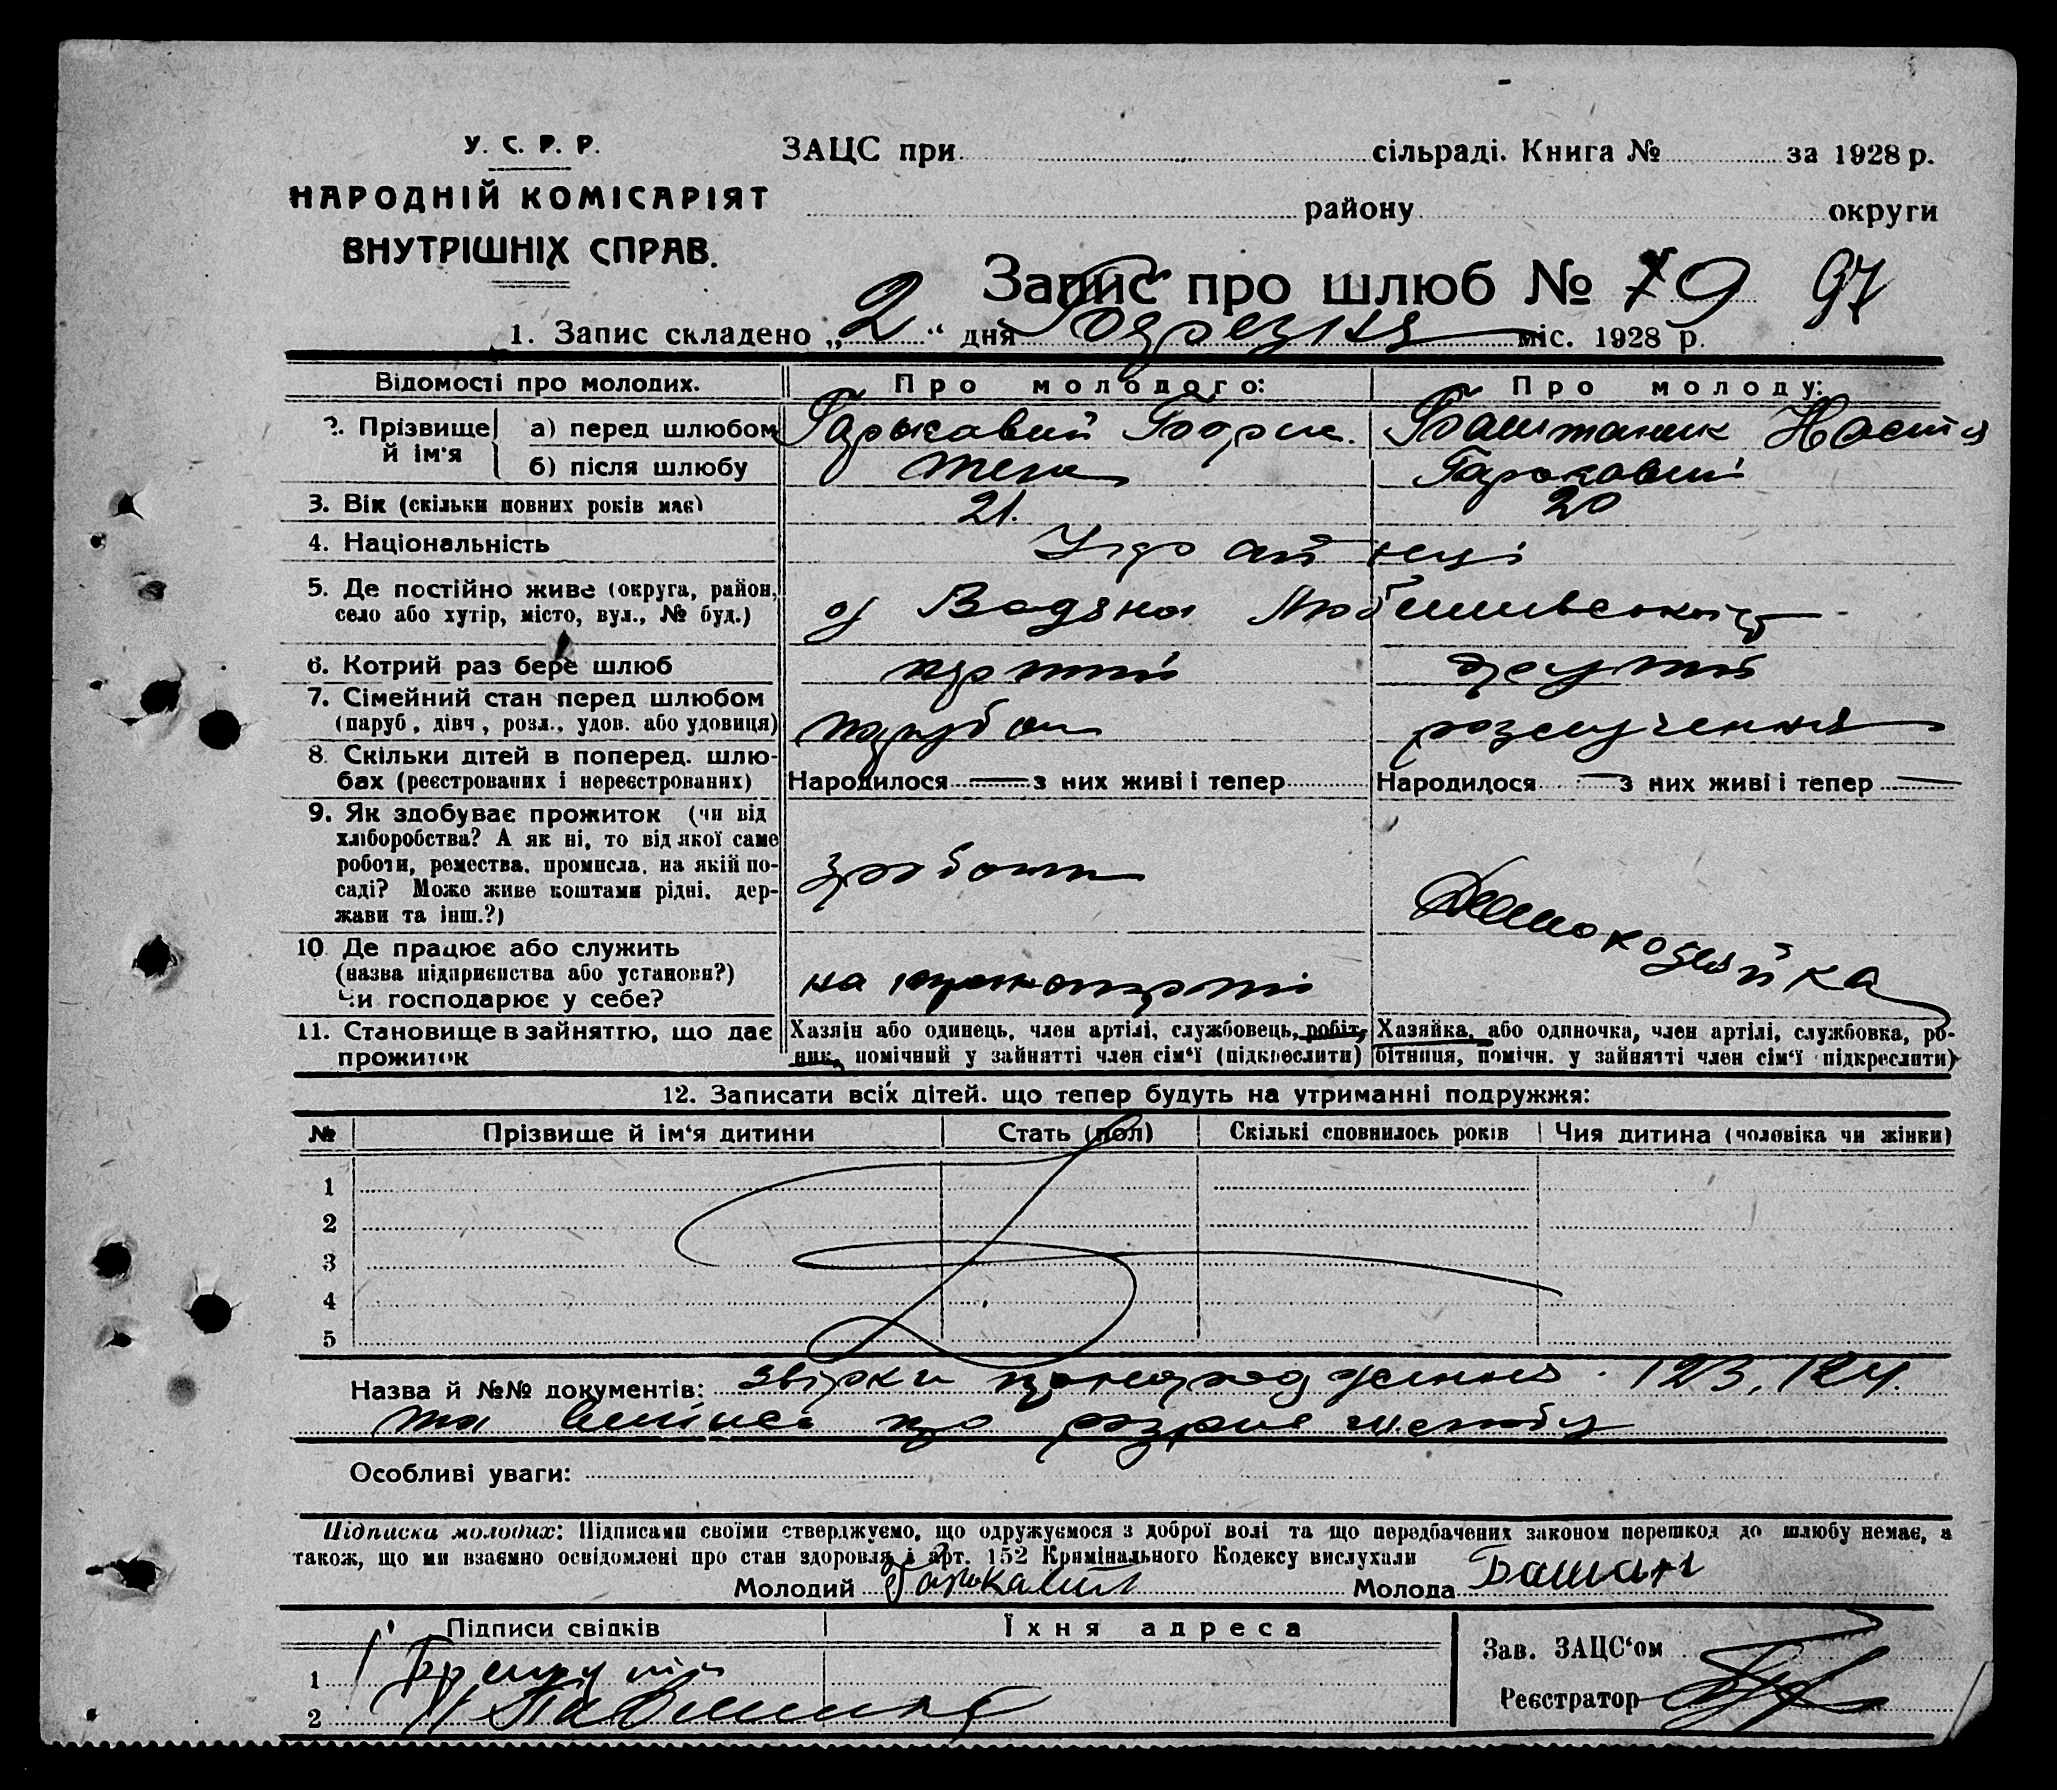 У. С. Р. Р.
НАРОДНІЙ КОМІСАРІЯТ
ВНУТРІШНІХ СПРАВ.
ЗАЦС при сільраді. Книга № за 1928 р.
району округи
Запис про шлюб № 79 97
1. Запис складено „2“ дня березня міс. 1928 р.
Відомості про молодих. Про молодого: Про молоду:
2. Прізвище й ім'я
а) перед шлюбом Гарькавий Борис. Баштаник Настя
б) після шлюбу теж Гарькавий
3. Вік (скільки повних років має) 21. 20
4. Національність Українці
5. Де постійно живе (округа, район, село або хутір, місто, вул., № буд.) Водяна
6. Котрий раз бере шлюб перший другий
7. Сімейний стан перед шлюбом (паруб, дівч, розл., удов. або удовиця) парубок розлучення
8. Скільки дітей в поперед. шлюбах (реєстрованих і нереєстрованих) Народилося з них живі і тепер Народилося з них живі і тепер
9. Як здобуває прожиток (чи від
хліборобства? А як ні, то від якої саме
роботи, ремества, промисла, на якій по-
саді? Може живе коштами рідні, дер-
жави та інш.?)
з роботи
Домохозяйка
10 Де працює або служить
(назва підприємства або установи?)
Чи господарює у себе?
на
11. Становище в зайняттю, що дає прожиток
Хазяїн або одинець, член артілі, службовець, робіт-
ник, помічний у зайнятті член сім'ї (підкреслити)
Хазяйка, або одиночка, член артілі, службовка, ро-
бітниця, помічн. у зайнятті член сім'ї підкреслити)
12. Записати всіх дітей, що тепер будуть на утриманні подружжя:
№ Прізвище й ім'я дитини Стать (пол) Скількі сповнилось років Чия дитина (чоловіка чи жінки)
1
2
3
4
5
Назва й №№ документів: 123, 124.
та про розрив шлюбу
Особливі уваги:
Підписка молодих: Підписами своїми стверджуємо, що одружуємося з доброї волі та що передбачених законом перешкод до шлюбу немає, а
також, що ми взаємно освідомлені про стан здоровля і арт. 152 Кримінального Кодексу вислухали
Молодий Гарькавий Молода Баштан
Підписи свідків Їхня адреса
1
2
Зав. ЗАЦС'ом
Реєстратор